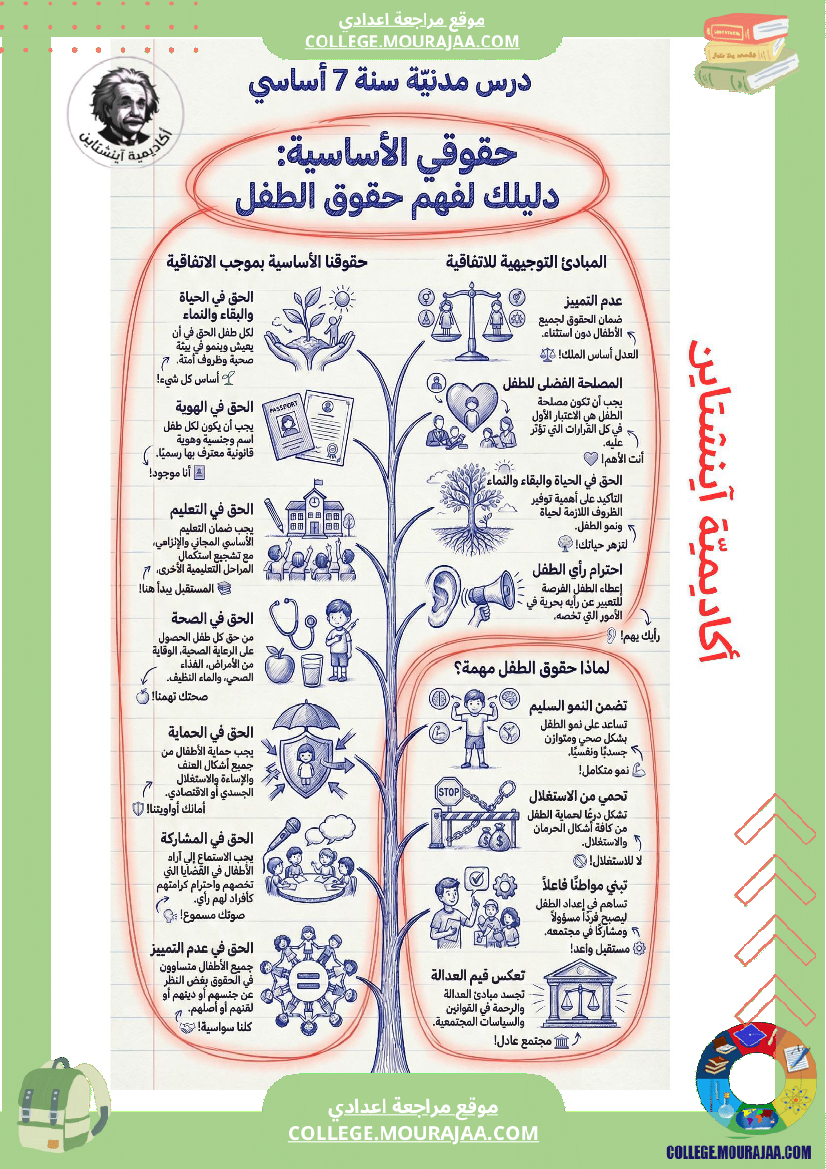 موقع مراجعة اعدادي
COLLEGE.MOURAJAA.COM
درس مدنيّة سنة 7 أساسي
أكاديمية آينشتاين
حقوقي الأساسية:
دليلك لفهم حقوق الطفل
المبادئ التوجيهية للاتفاقية
عدم التمييز
ضمان الحقوق لجميع
الأطفال دون استثناء.
العدل أساس الملك!
المصلحة الفضلى للطفل
يجب أن تكون مصلحة
الطفل هي الاعتبار الأول
في كل القرارات التي تؤثر
عليه.
أنت الأهم!
الحق في الحياة والبقاء والنماء
التأكيد على أهمية توفير
الظروف اللازمة لحياة
ونمو الطفل.
لتزهر حياتك!
احترام رأي الطفل
إعطاء الطفل الفرصة
للتعبير عن رأيه بحرية في
الأمور التي تخصه.
رأيك يهم!
لماذا حقوق الطفل مهمة؟
تضمن النمو السليم
تساعد على نمو الطفل
بشكل صحي ومتوازن
جسديًا ونفسيًا.
نمو متكامل!
تحمي من الاستغلال
STOP
تشكل درعًا لحماية الطفل
من كافة أشكال الحرمان
والاستغلال.
لا للاستغلال!
تبني مواطنًا فاعلاً
تساهم في إعداد الطفل
ليصبح فردًا مسؤولاً
ومشاركًا في مجتمعه.
مستقبل واعد!
تعكس قيم العدالة
تجسد مبادئ العدالة
والرحمة في القوانين
والسياسات المجتمعية.
مجتمع عادل!
حقوقنا الأساسية بموجب الاتفاقية
الحق في الحياة
والبقاء والنماء
لكل طفل الحق في أن
يعيش وينمو في بيئة
صحية وظروف آمنة.
أساس كل شيء!
الحق في الهوية
PASSPORT
يجب أن يكون لكل طفل
اسم وجنسية وهوية
قانونية معترف بها رسميًا.
أنا موجود!
الحق في التعليم
يجب ضمان التعليم
الأساسي المجاني والإلزامي،
مع تشجيع استكمال
المراحل التعليمية الأخرى.
المستقبل يبدأ هنا!
الحق في الصحة
من حق كل طفل الحصول
على الرعاية الصحية، الوقاية
من الأمراض، الغذاء
الصحي، والماء النظيف.
صحتك تهمنا!
الحق في الحماية
يجب حماية الأطفال من
جميع أشكال العنف
والإساءة والاستغلال
الجسدي أو الاقتصادي.
أمانك أولويتنا!
الحق في المشاركة
يجب الاستماع إلى آراء
الأطفال في القضايا التي
تخصهم واحترام كرامتهم
كأفراد لهم رأي.
صوتك مسموع!
الحق في عدم التمييز
جميع الأطفال متساوون
في الحقوق بغض النظر
عن جنسهم أو دينهم أو
لغتهم أو أصلهم.
كلنا سواسية!
أكاديميّة آينشتاين
موقع مراجعة اعدادي
COLLEGE.MOURAJAA.COM
COLLEGE.MOURAJAA.COM